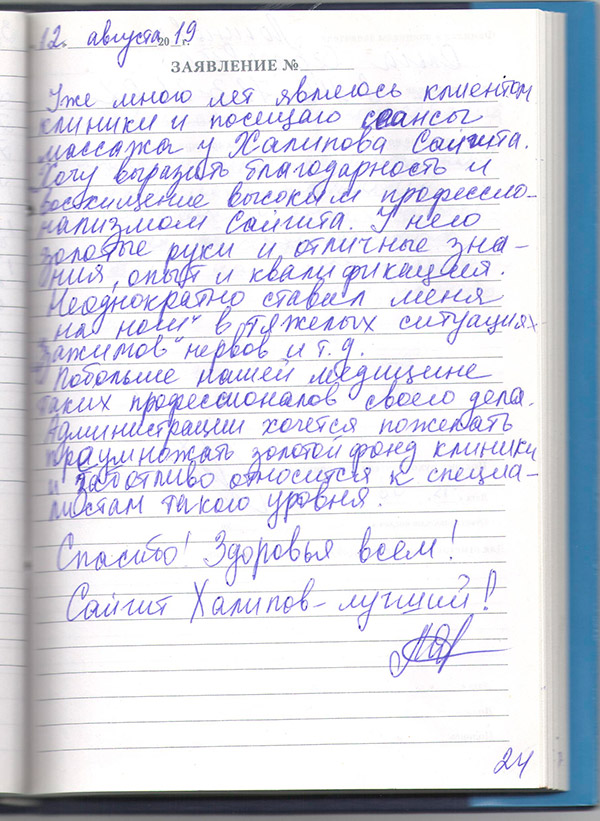 12. августа 2019 г.
ЗАЯВЛЕНИЕ №
Уже много лет являюсь клиентом
клиники и посещаю сеансы
массажа у Халипова Сайгита.
Хочу выразить благодарность и
восхищение высоким профессио-
нализмом Сайгита. У него
золотые руки и отличные зна-
ния, опыт и квалификация.
Неоднократно ставил меня
"на ноги" в тяжелых ситуациях
"зажимов" нервов и т.д.
Побольше нашей медицине
таких профессионалов своего дела.
Администрации хочется пожелать
приумножать золотой фонд клиники
и заботливо относится к специа-
листам такого уровня.
Спасибо! Здоровья всем!
Сайгит Халипов - лучший!
24